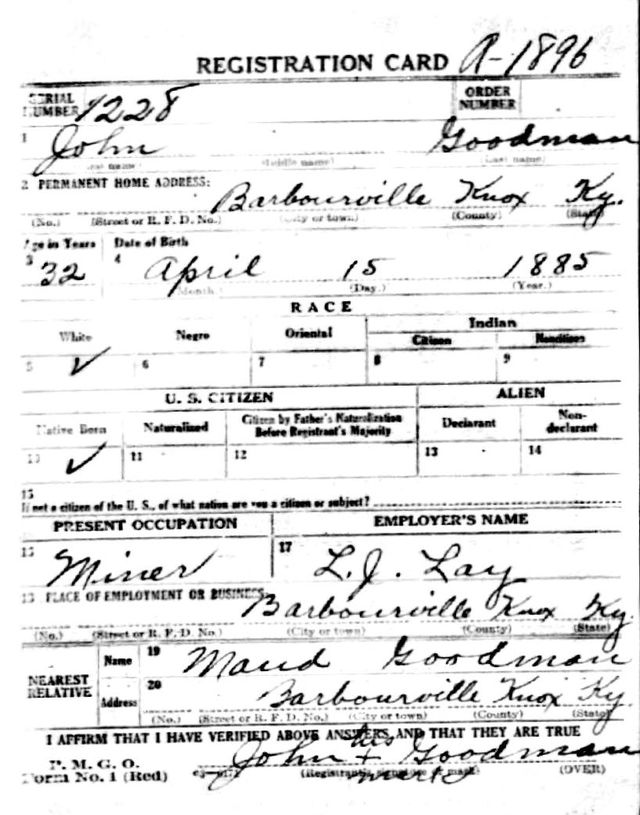 REGISTRATION CARD A-1896
SERIAL NUMBER 1228 ORDER NUMBER
1 John Goodman
(Middle name) (Last name)
2 PERMANENT HOME ADDRESS: Barbourville Knox Ky.
(No.) (Street or R. F. D. No.) (City or town) (County) (State)
Age in Years Date of Birth
3 32 4 April 15 1885
(Month.) (Day.) (Year.)
RACE
White Negro Oriental Indian
Citizen Noncitizen
5 ✓ 6 7 8 9
U. S. CITIZEN ALIEN
Native Born Naturalized Citizen by Father's Naturalization Before Registrant's Majority Declarant Non-declarant
10 ✓ 11 12 13 14
15
If not a citizen of the U. S., of what nation are you a citizen or subject?
PRESENT OCCUPATION EMPLOYER'S NAME
16 Miner 17 L. J. Lay
18 PLACE OF EMPLOYMENT OR BUSINESS: Barbourville Knox Ky.
(No.) (Street or R. F. D. No.) (City or town) (County) (State)
NEAREST RELATIVE Name 19 Maud Goodman
Address 20 Barbourville Knox Ky.
(No.) (Street or R. F. D. No.) (City or town) (County) (State)
I AFFIRM THAT I HAVE VERIFIED ABOVE ANSWERS AND THAT THEY ARE TRUE
P. M. G. O. John his + mark Goodman
Form No. 1 (Red) (Registrant's signature or mark) (OVER)